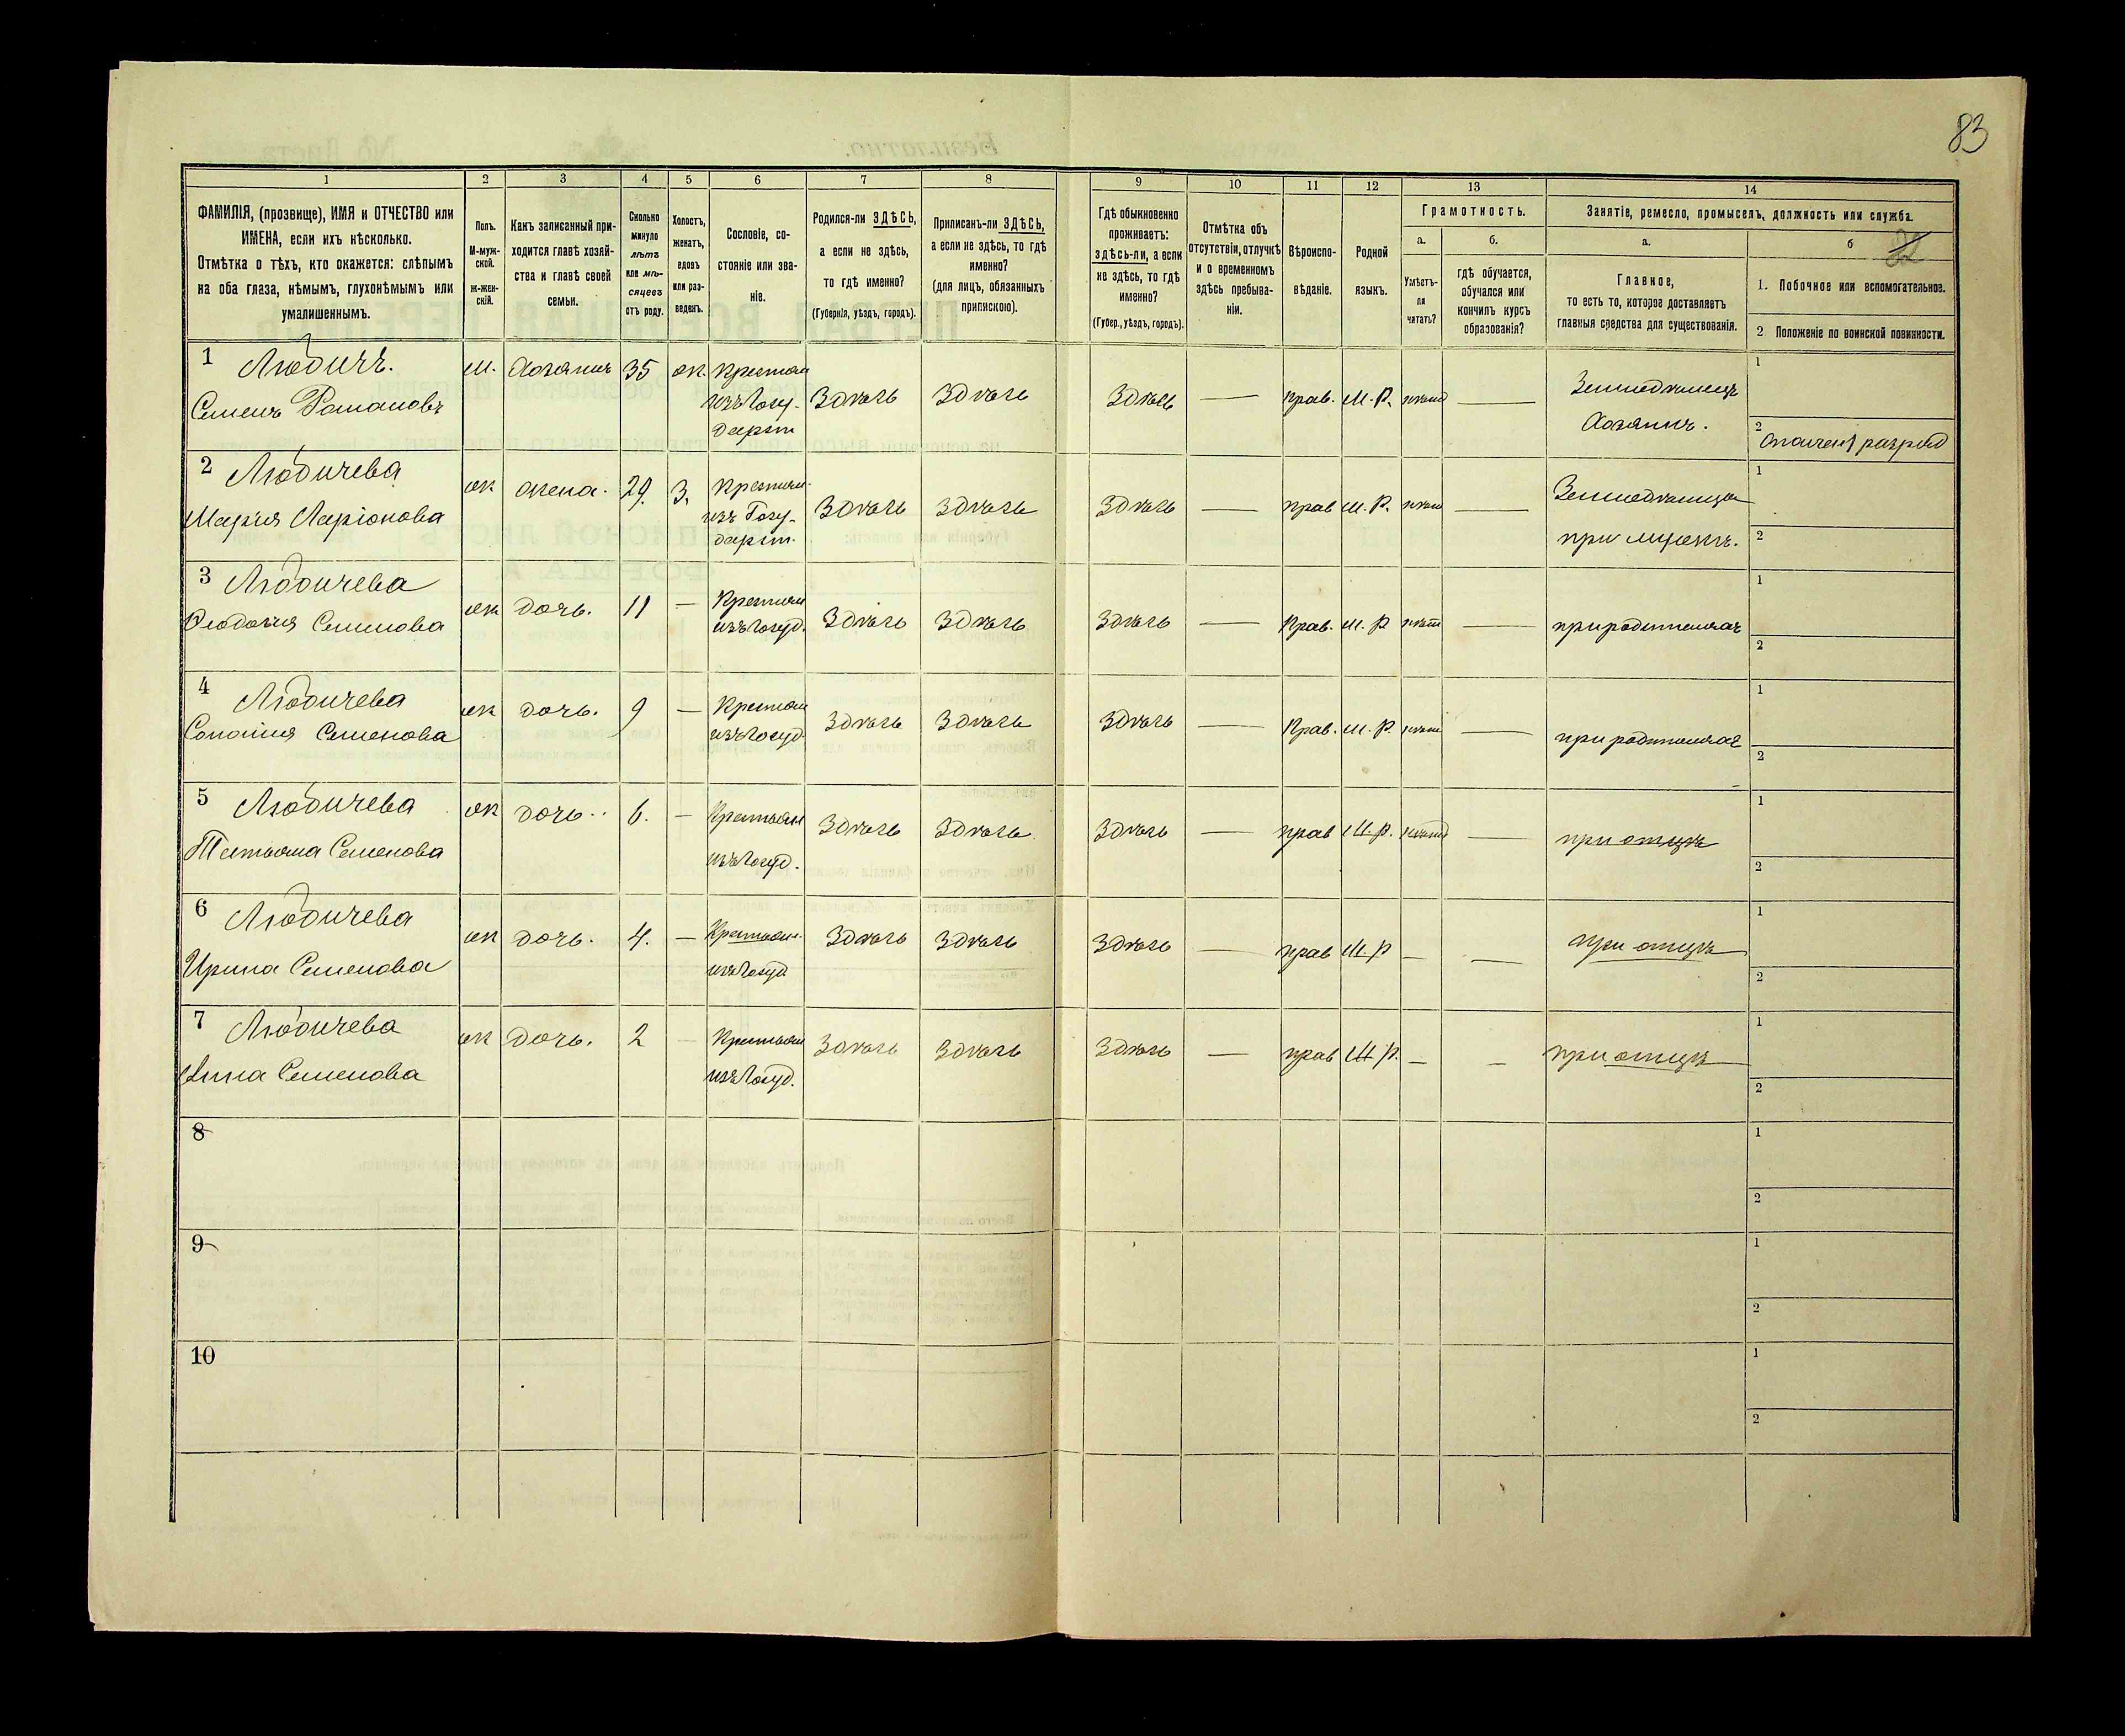 83
1 2 3 4 5 6 7 8 9 10 11 12 13 14
ФАМИЛІЯ, (прозвище), ИМЯ и ОТЧЕСТВО или
ИМЕНА, если ихъ нѣсколько.
Отмѣтка о тѣхъ, кто окажется: слѣпымъ
на оба глаза, нѣмымъ, глухонѣмымъ или
умалишеннымъ.
Полъ.
М-муж-
ской.
ж-жен-
скій.
Какъ записанный при-
ходится главѣ хозяй-
ства и главѣ своей
семьи.
Сколько
минуло
лѣтъ
или мѣ-
сяцевъ
отъ роду.
Холостъ,
женатъ,
вдовъ
или раз-
веденъ.
Сословіе, со-
стояніе или зва-
ніе.
Родился-ли ЗДѢСЬ,
а если не здѣсь,
то гдѣ именно?
(Губернія, уѣздъ, городъ).
Приписанъ-ли ЗДѢСЬ,
а если не здѣсь, то гдѣ
именно?
(для лицъ, обязанныхъ
припискою).
Гдѣ обыкновенно
проживаетъ:
здѣсь-ли, а если
не здѣсь, то гдѣ
именно?
(Губер., уѣздъ, городъ).
Отмѣтка объ
отсутствіи, отлучкѣ
и о временномъ
здѣсь пребыва-
ніи.
Вѣроиспо-
вѣданіе.
Родной
языкъ.
Грамотность.
а.
Умѣетъ-
ли
читать?
б.
гдѣ обучается,
обучался или
кончилъ курсъ
образованія?
Занятіе, ремесло, промыселъ, должность или служба.
а.
Главное,
то есть то, которое доставляетъ
главныя средства для существованія.
б
1. Побочное или вспомогательное.
2 Положеніе по воинской повинности.
1 Любичъ. м. Хозяинъ 35 ж. Крестьян
Семенъ Романовъ изъ Госу- Здѣсь Здѣсь Здѣсь — прав. М.Р. нѣтъ — Земледѣлецъ
дарст Хозяинъ.
1
2
разряд
2 Любичева ж жена. 29. З. Крестьян.
Марія Ларіонова изъ Госу- Здѣсь Здѣсь Здѣсь — прав М.Р. нѣтъ — Земледѣлица
дарст. при мужѣ.
1
2
3 Любичева ж дочь. 11 — Крестьян
Ѳеодосія Семенова изъ Госуд. Здѣсь Здѣсь Здѣсь — Прав. М.Р нѣтъ — при родителяхъ
1
2
4 Любичева ж дочь. 9 — Крестьян
Семенова изъ Госуд. Здѣсь Здѣсь Здѣсь — Прав. М.Р. нѣтъ — при родителяхъ
1
2
5 Любичева ж дочь. 6. — Крестьян
Татьяна Семенова изъ Госуд. Здѣсь Здѣсь Здѣсь — прав М.Р. нѣтъ — при отцѣ
1
2
6 Любичева ж дочь. 4. — Крестьян.
Ирина Семенова изъ Госуд Здѣсь Здѣсь Здѣсь — прав М.Р — — при отцѣ
1
2
7 Любичева ж Дочь. 2 — Крестьян
Анна Семенова изъ Госуд. Здѣсь Здѣсь Здѣсь — прав М.Р. — — при отцѣ
1
2
8
1
2
9
1
2
10
1
2